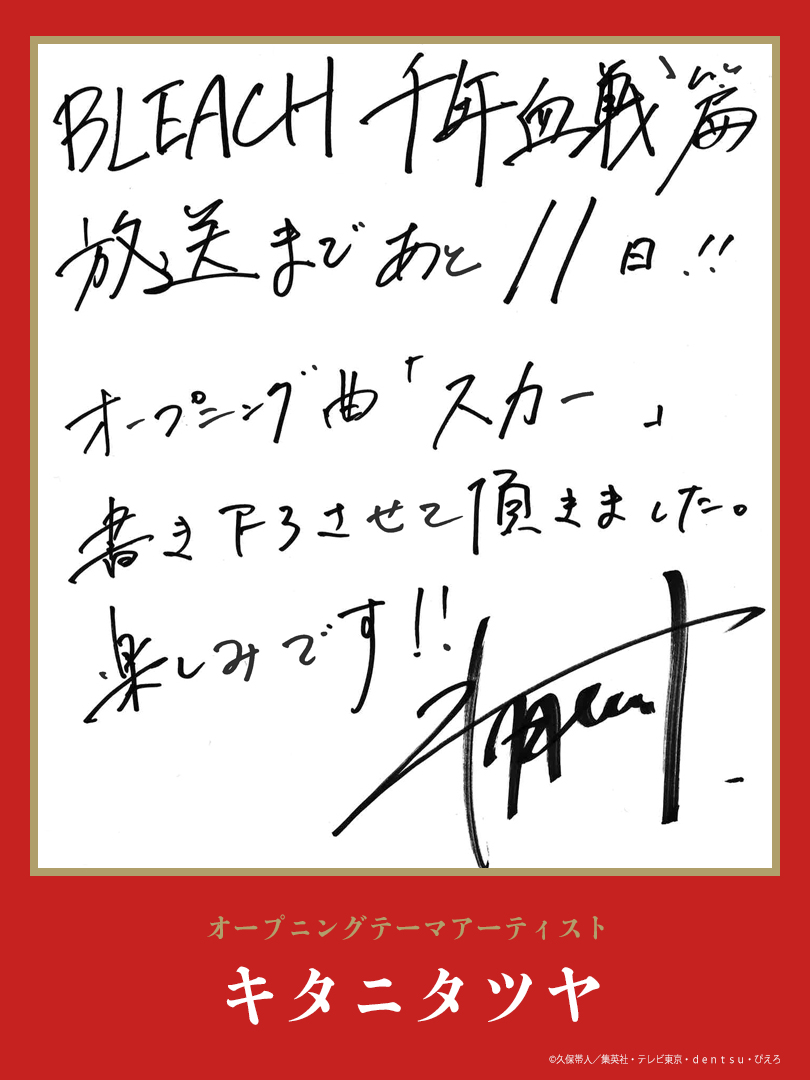 BLEACH 千年血戦篇
放送まであと 11日!!
オープニング曲「スカー」
書き下ろさせて頂きました。
楽しみです!!
オープニングテーマアーティスト
キタニタツヤ
©久保帯人／集英社・テレビ東京・dentsu・ぴえろ